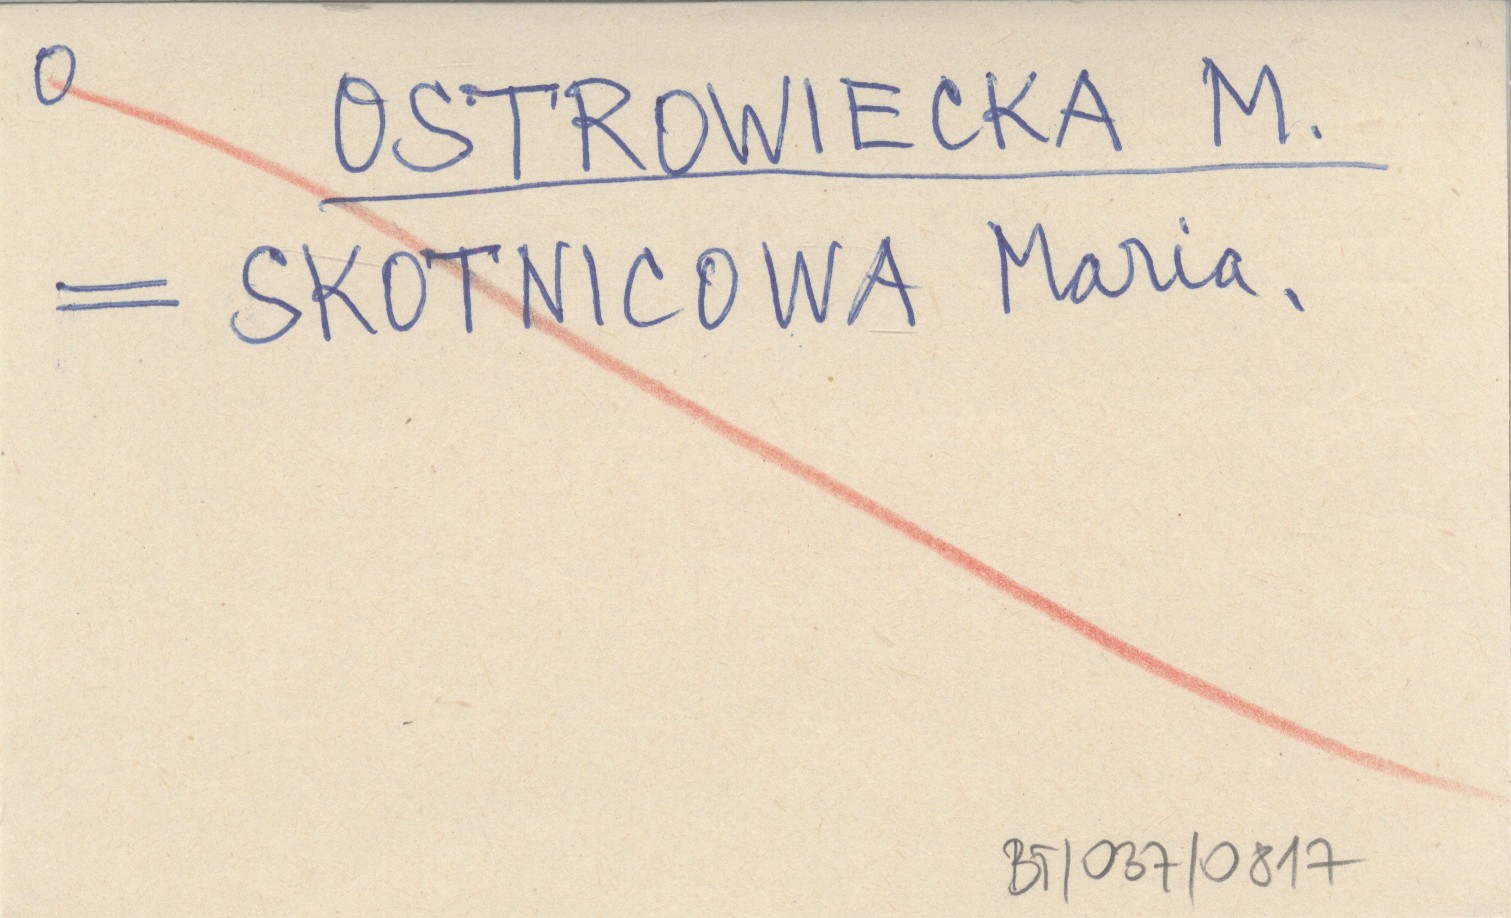 O
OSTROWIECKA M.
= SKOTNICOWA Maria.
BT/037/0817